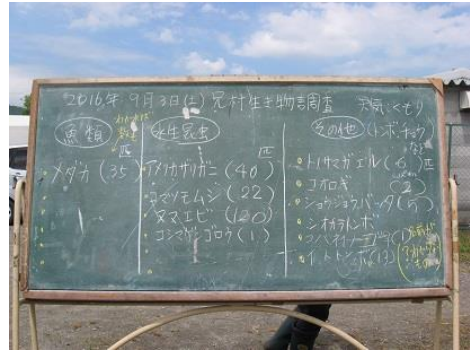 2016年 9月3日(土) 兄村生き物調査 天気:くもり
魚類
匹
メダカ(35)
水生昆虫
匹
アメリカザリガニ(40)
コマツモムシ(22)
ヌマエビ(120)
コシマゲンゴロウ(1)
その他(トンボ・チョウ
など)
トノサマガエル(6)匹
コオロギ(2)
ショウジョウバッタ(5)
シオカラトンボ
イトトンボ(13)